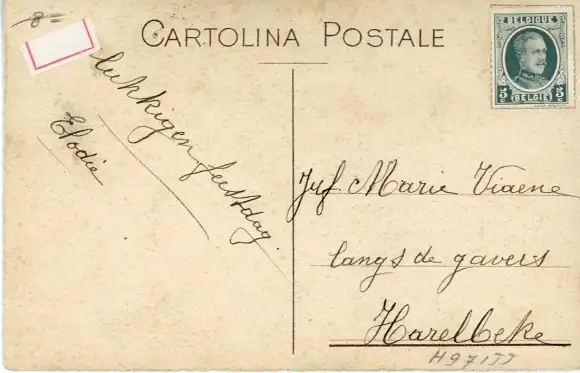 8=
CARTOLINA POSTALE
BELGIQUE
5 5
BELGIË
lukkigen feestdag
Elodie
Juf. Marie Viaene
langs de gavers
Harelbeke